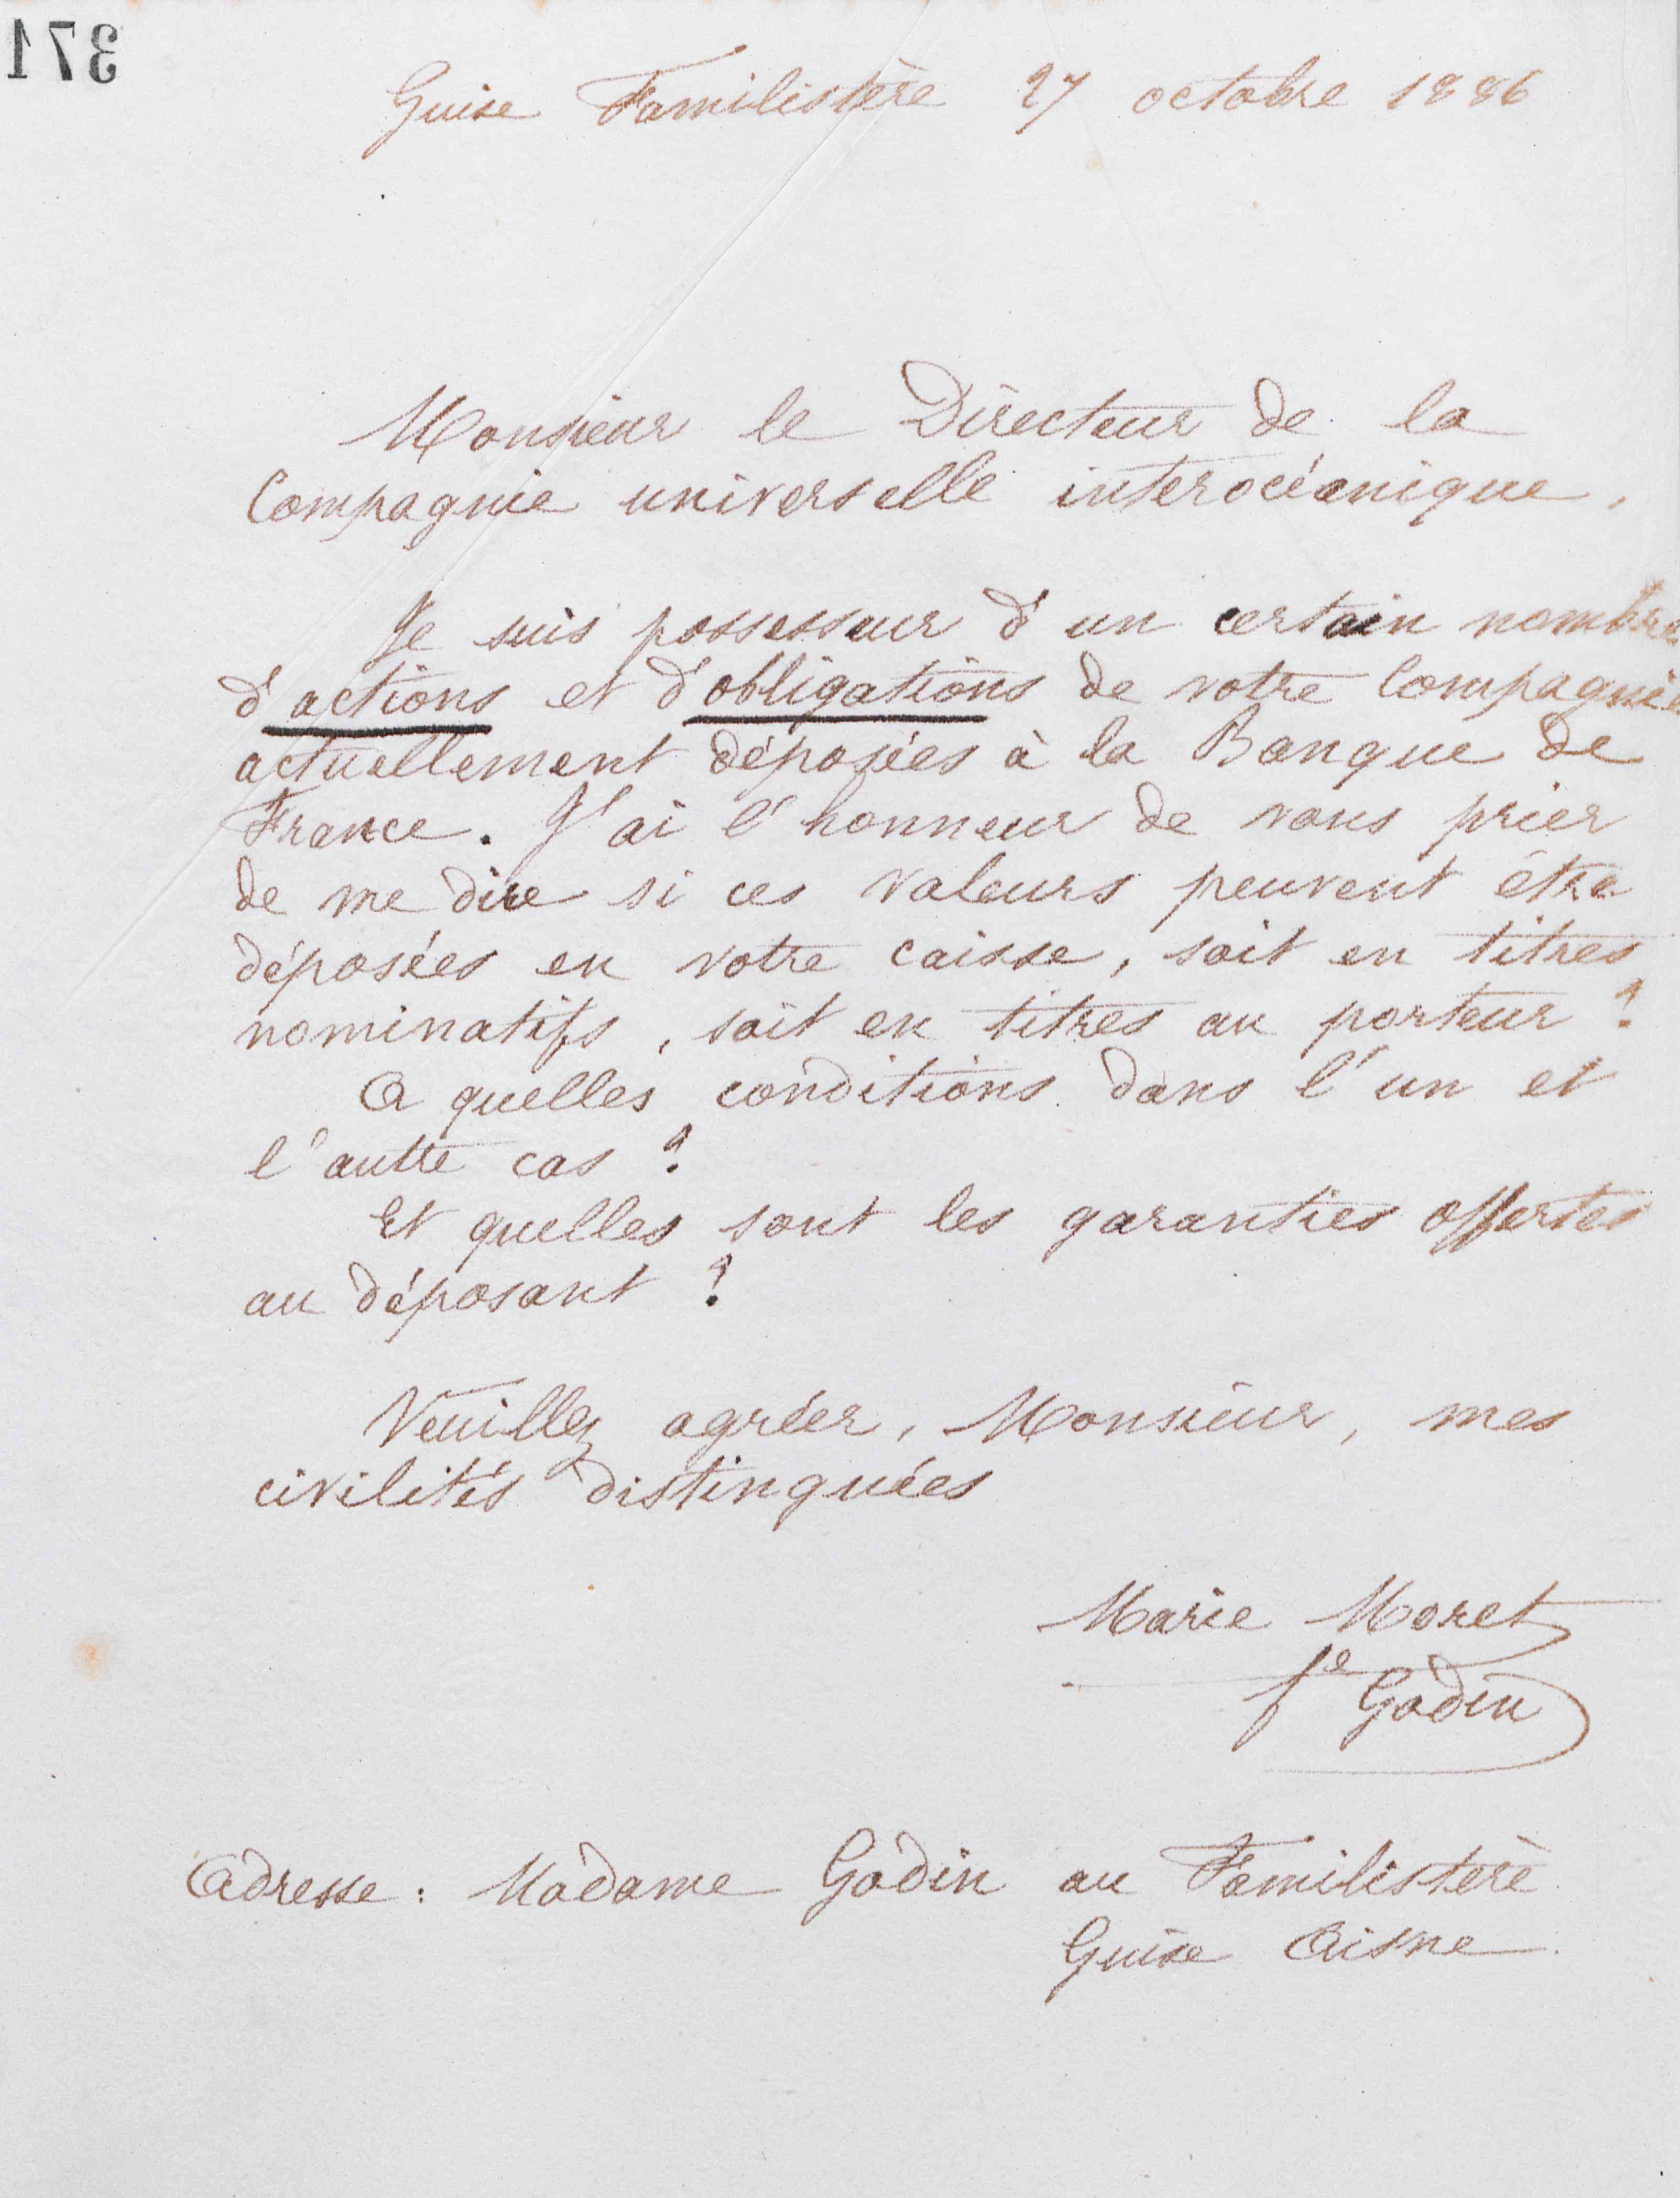 371
Guise Familistère 27 octobre 1886
Monsieur le Directeur de la
Compagnie universelle interocéanique,
Je suis possesseur d'un certain nombre
d'actions et d'obligations de votre Compagnie
actuellement déposées à la Banque de
France. J'ai l'honneur de vous prier
de me dire si ces valeurs peuvent être
déposées en votre caisse, soit en titres
nominatifs, soit en titres au porteur ?
A quelles conditions dans l'un et
l'autre cas ?
Et quelles sont les garanties offertes
au déposant ?
Veuillez agréer, Monsieur, mes
civilités distinguées
Marie Moret
fe Godin
Adresse : Madame Godin au Familistère
Guise Aisne.